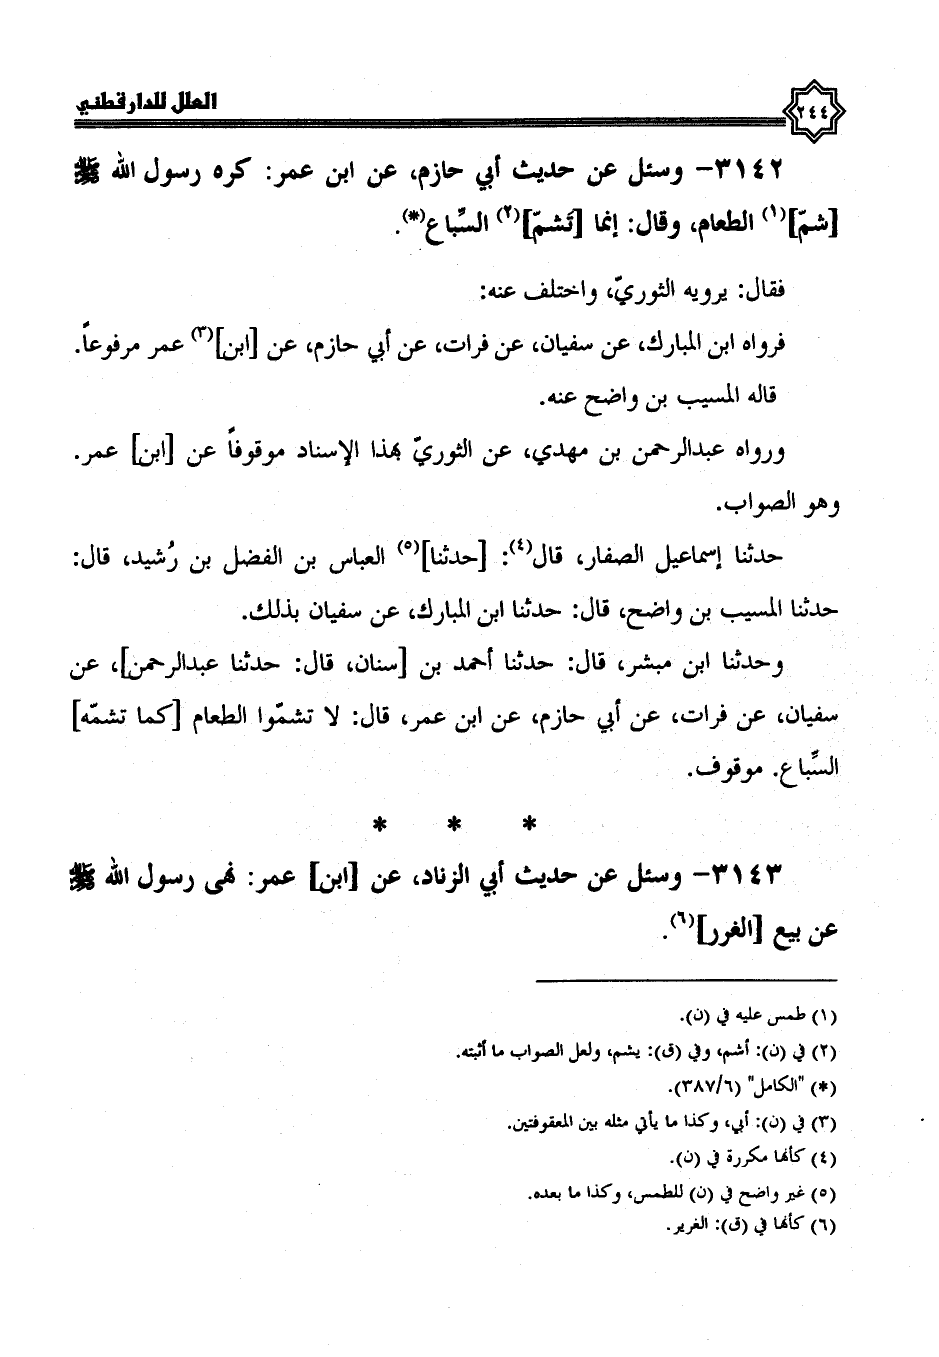 ٢٤٤
العلل للدارقطني
٣١٤٢- وسئل عن حديث أبي حازم، عن ابن عمر: كره رسول الله ﷺ
[شمّ](١) الطعام، وقال: إنما [تَشمّ](٢) السِّباع(*).
فقال: يرويه الثوريّ، واختلف عنه:
فرواه ابن المبارك، عن سفيان، عن فرات، عن أبي حازم، عن [ابن](٣) عمر مرفوعاً.
قاله المسيب بن واضح عنه.
ورواه عبدالرحمن بن مهدي، عن الثوريّ بهذا الإسناد موقوفاً عن [ابن] عمر.
وهو الصواب.
حدثنا إسماعيل الصفار، قال(٤): [حدثنا](٥) العباس بن الفضل بن رُشيد، قال:
حدثنا المسيب بن واضح، قال: حدثنا ابن المبارك، عن سفيان بذلك.
وحدثنا ابن مبشر، قال: حدثنا أحمد بن [سنان، قال: حدثنا عبدالرحمن]، عن
سفيان، عن فرات، عن أبي حازم، عن ابن عمر، قال: لا تشمّوا الطعام [كما تشمّه]
السِّباع. موقوف.
* * *
٣١٤٣- وسئل عن حديث أبي الزناد، عن [ابن] عمر: نهى رسول الله ﷺ
عن بيع [الغرر](٦).
(١) طمس عليه في (ن).
(٢) في (ن): أشم، وفي (ق): يشم، ولعل الصواب ما أثبته.
(*) "الكامل" (٣٨٧/٦).
(٣) في (ن): أبي، وكذا ما يأتي مثله بين المعقوفتين.
(٤) كأنها مكررة في (ن).
(٥) غير واضح في (ن) للطمس، وكذا ما بعده.
(٦) كأنها في (ق): الغرير.